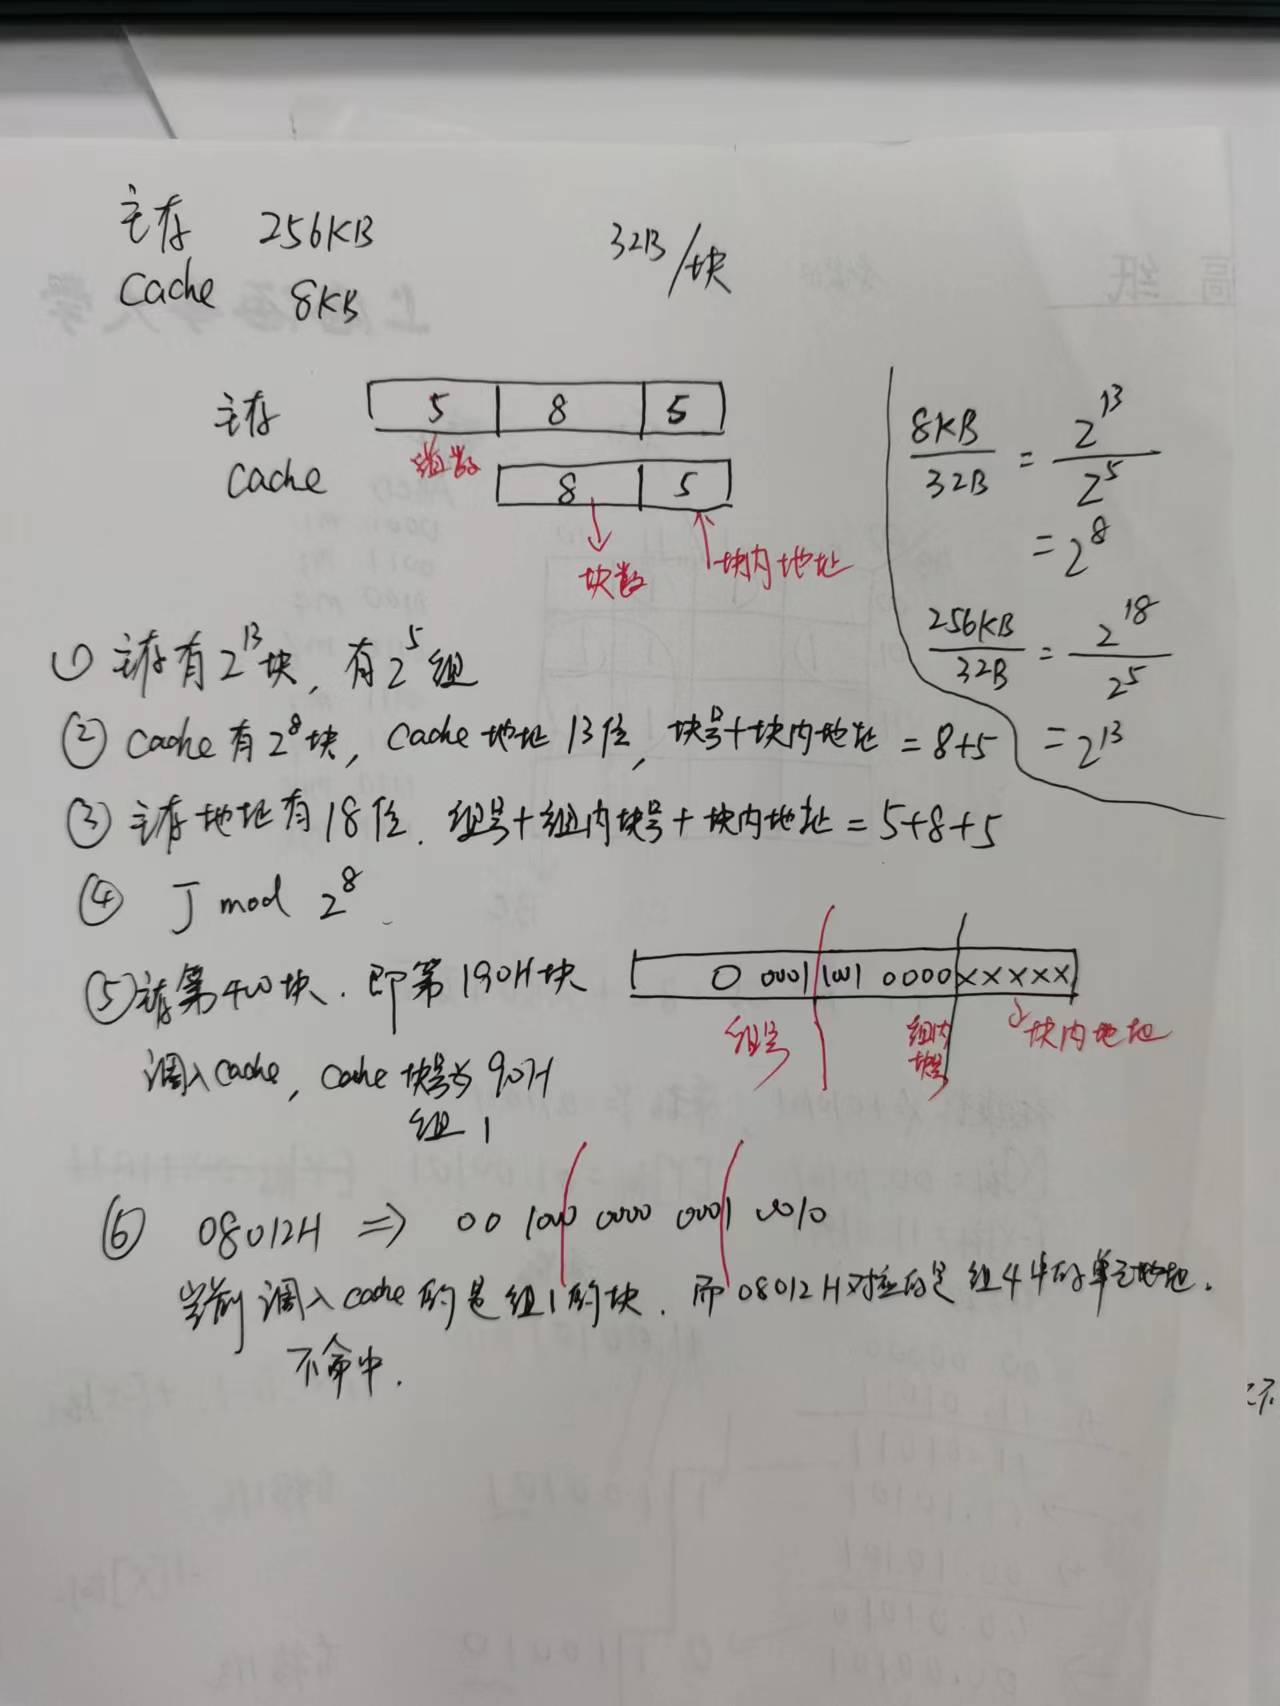 主存 256KB 32B/块
Cache 8KB
主存 5 8 5
组数
Cache 8 5
块数 块内地址
8KB/32B = 2^13/2^5
= 2^8
256KB/32B = 2^18/2^5
= 2^13
① 主存有2^13块，有2^5组
② Cache有2^8块，Cache地址13位，块号+块内地址 = 8+5
③ 主存地址有18位．组号+组内块号+块内地址 = 5+8+5
④ J mod 2^8
⑤ 主存第400块．即第190H块 0 0001 1001 0000 xxxxx
组号 组内块号 块内地址
调入cache，Cache块号为90H
组1
⑥ 08012H ⇒ 00 1000 0000 0001 0010
当前调入cache的是组1的块．而08012H对应的是组4中的单元地址．
不命中．